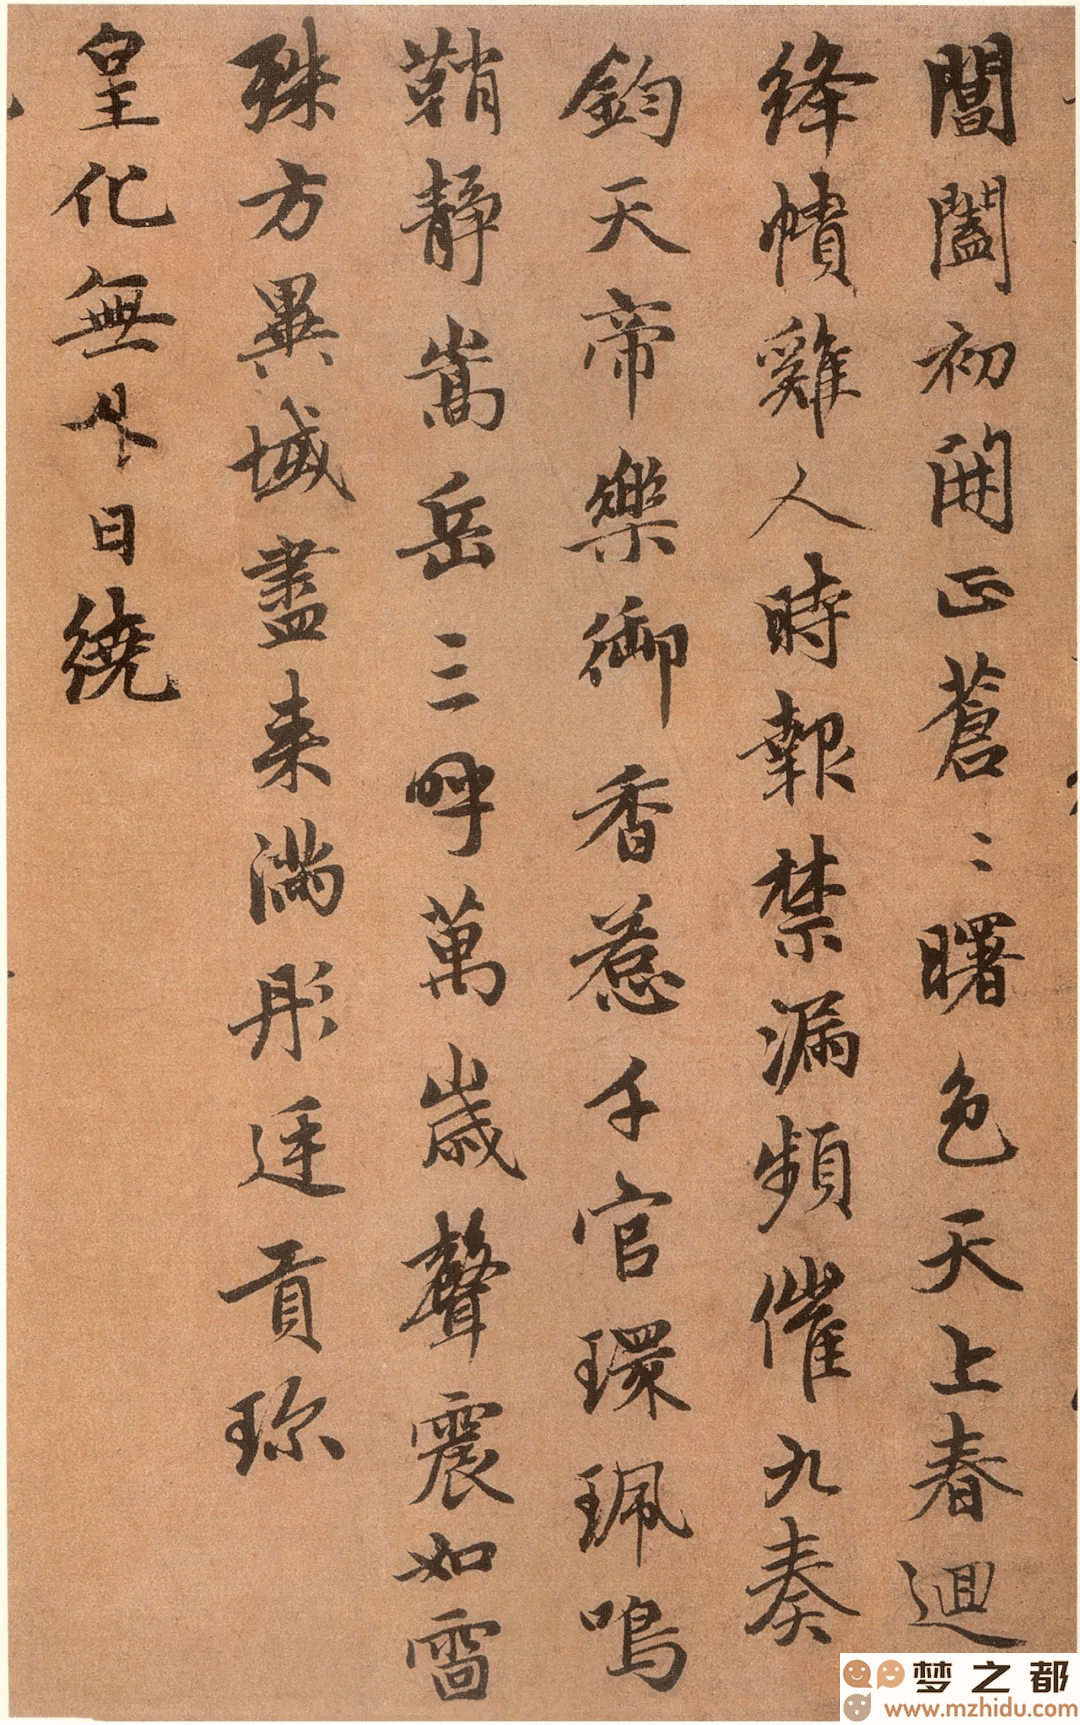 閶闔初開正蒼〻曙色天上春迴
絳幘雞人時報禁漏頻催九奏
鈞天帝樂御香惹千官環珮鳴
鞘静嵩岳三呼萬歲聲震如雷
殊方異域盡来满彤廷貢珎
皇化無外日繞
梦之都
www.mzhidu.com